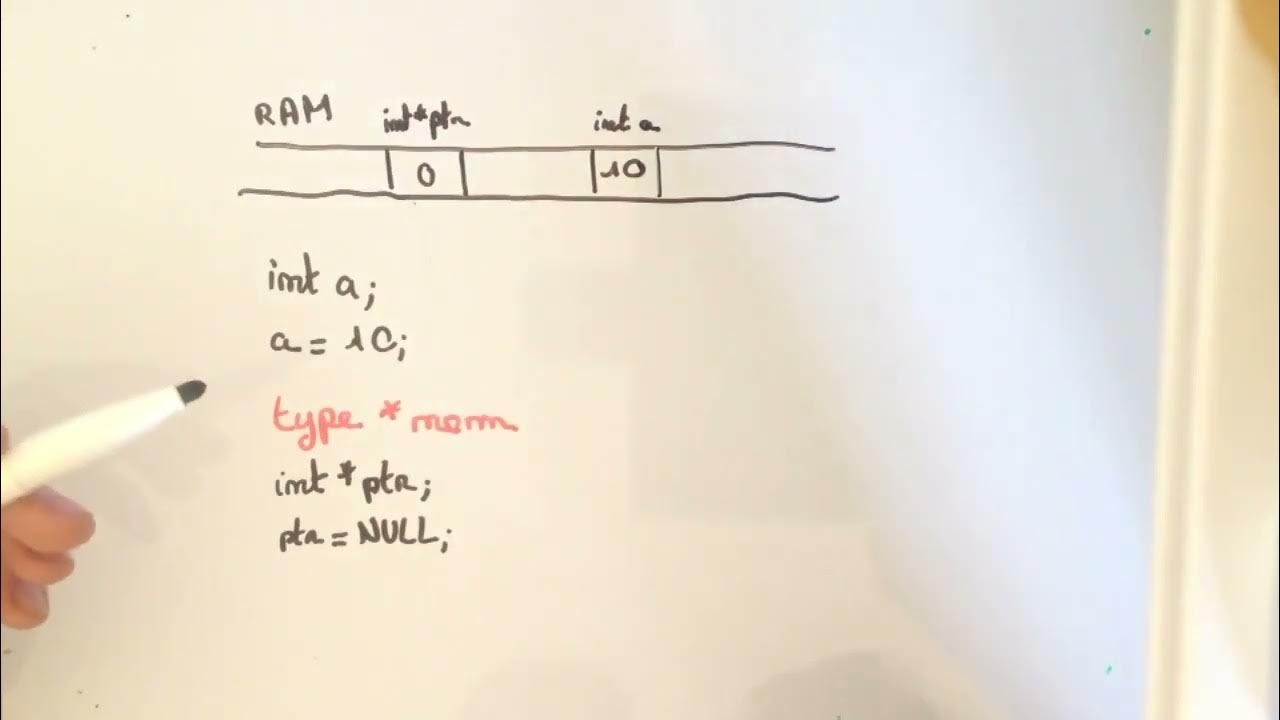 RAM int*ptr int a
0 10
int a;
a = 10;
type * nom
int * ptr;
ptr = NULL;